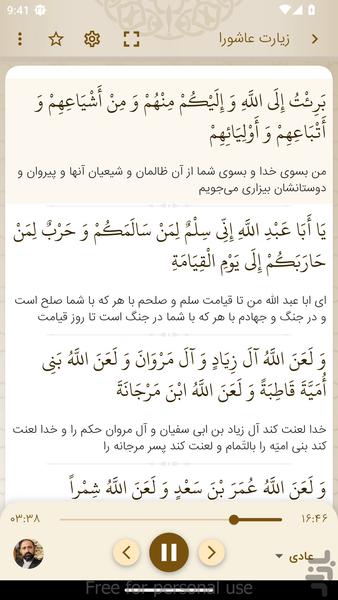 9:41
زیارت عاشورا
بَرِئْتُ إِلَى اللَّهِ وَ إِلَيْكُمْ مِنْهُمْ وَ مِنْ أَشْيَاعِهِمْ وَ
أَتْبَاعِهِمْ وَ أَوْلِيَائِهِمْ
من بسوی خدا و بسوی شما از آن ظالمان و شیعیان آنها و پیروان و
دوستانشان بیزاری می‌جویم
يَا أَبَا عَبْدِ اللَّهِ إِنِّي سِلْمٌ لِمَنْ سَالَمَكُمْ وَ حَرْبٌ لِمَنْ
حَارَبَكُمْ إِلَى يَوْمِ الْقِيَامَةِ
ای ابا عبد الله من تا قیامت سلم و صلحم با هر که با شما صلح است
و در جنگ و جهادم با هر که با شما در جنگ است تا روز قیامت
وَ لَعَنَ اللَّهُ آلَ زِيَادٍ وَ آلَ مَرْوَانَ وَ لَعَنَ اللَّهُ بَنِي
أُمَيَّةَ قَاطِبَةً وَ لَعَنَ اللَّهُ ابْنَ مَرْجَانَةَ
خدا لعنت کند آل زیاد بن ابی سفیان و آل مروان حکم را و خدا لعنت
کند بنی امیّه را بالتّمام و لعنت کند پسر مرجانه را
وَ لَعَنَ اللَّهُ عُمَرَ بْنَ سَعْدٍ وَ لَعَنَ اللَّهُ شِمْراً
۰۳:۳۸
۱۶:۴۶
عادی
Free for personal use
بازار